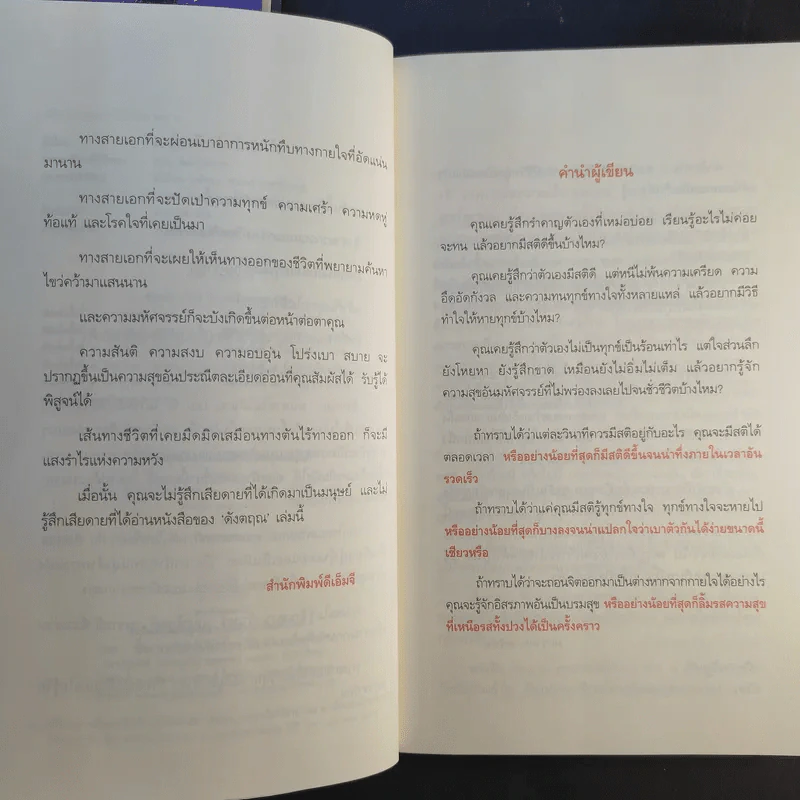 ทางสายเอกที่จะผ่อนเบาอาการหนักทึบทางกายใจที่อัดแน่น
มานาน
ทางสายเอกที่จะปัดเป่าความทุกข์ ความเศร้า ความหดหู่
ท้อแท้ และโรคใจที่เคยเป็นมา
ทางสายเอกที่จะเผยให้เห็นทางออกของชีวิตที่พยายามค้นหา
ไขว่คว้ามาแสนนาน
และความมหัศจรรย์ก็จะบังเกิดขึ้นต่อหน้าต่อตาคุณ
ความสันติ ความสงบ ความอบอุ่น โปร่งเบา สบาย จะ
ปรากฏขึ้นเป็นความสุขอันประณีตละเอียดอ่อนที่คุณสัมผัสได้ รับรู้ได้
พิสูจน์ได้
เส้นทางชีวิตที่เคยมืดมิดเสมือนทางตันไร้ทางออก ก็จะมี
แสงรำไรแห่งความหวัง
เมื่อนั้น คุณจะไม่รู้สึกเสียดายที่ได้เกิดมาเป็นมนุษย์ และไม่
รู้สึกเสียดายที่ได้อ่านหนังสือของ ‘ดังตฤณ’ เล่มนี้
สำนักพิมพ์ดีเอ็มจี
คำนำผู้เขียน
คุณเคยรู้สึกรำคาญตัวเองที่เหม่อบ่อย เรียนรู้อะไรไม่ค่อย
จะทน แล้วอยากมีสติดีขึ้นบ้างไหม?
คุณเคยรู้สึกว่าตัวเองมีสติดี แต่หนีไม่พ้นความเครียด ความ
อึดอัดกังวล และความทนทุกข์ทางใจทั้งหลายแหล่ แล้วอยากมีวิธี
ทำใจให้หายทุกข์บ้างไหม?
คุณเคยรู้สึกว่าตัวเองไม่เป็นทุกข์เป็นร้อนเท่าไร แต่ใจส่วนลึก
ยังโหยหา ยังรู้สึกขาด เหมือนยังไม่อิ่มไม่เต็ม แล้วอยากรู้จัก
ความสุขอันมหัศจรรย์ที่ไม่พร่องลงเลยไปจนชั่วชีวิตบ้างไหม?
ถ้าทราบได้ว่าแต่ละวินาทีควรมีสติอยู่กับอะไร คุณจะมีสติได้
ตลอดเวลา หรืออย่างน้อยที่สุดก็มีสติดีขึ้นจนน่าทึ่งภายในเวลาอัน
รวดเร็ว
ถ้าทราบได้ว่าแค่คุณมีสติรู้ทุกข์ทางใจ ทุกข์ทางใจจะหายไป
หรืออย่างน้อยที่สุดก็บางลงจนน่าแปลกใจว่าเบาตัวกันได้ง่ายขนาดนี้
เชียวหรือ
ถ้าทราบได้ว่าจะถอนจิตออกมาเป็นต่างหากจากกายใจได้อย่างไร
คุณจะรู้จักอิสรภาพอันเป็นบรมสุข หรืออย่างน้อยที่สุดก็ลิ้มรสความสุข
ที่เหนือรสทั้งปวงได้เป็นครั้งคราว